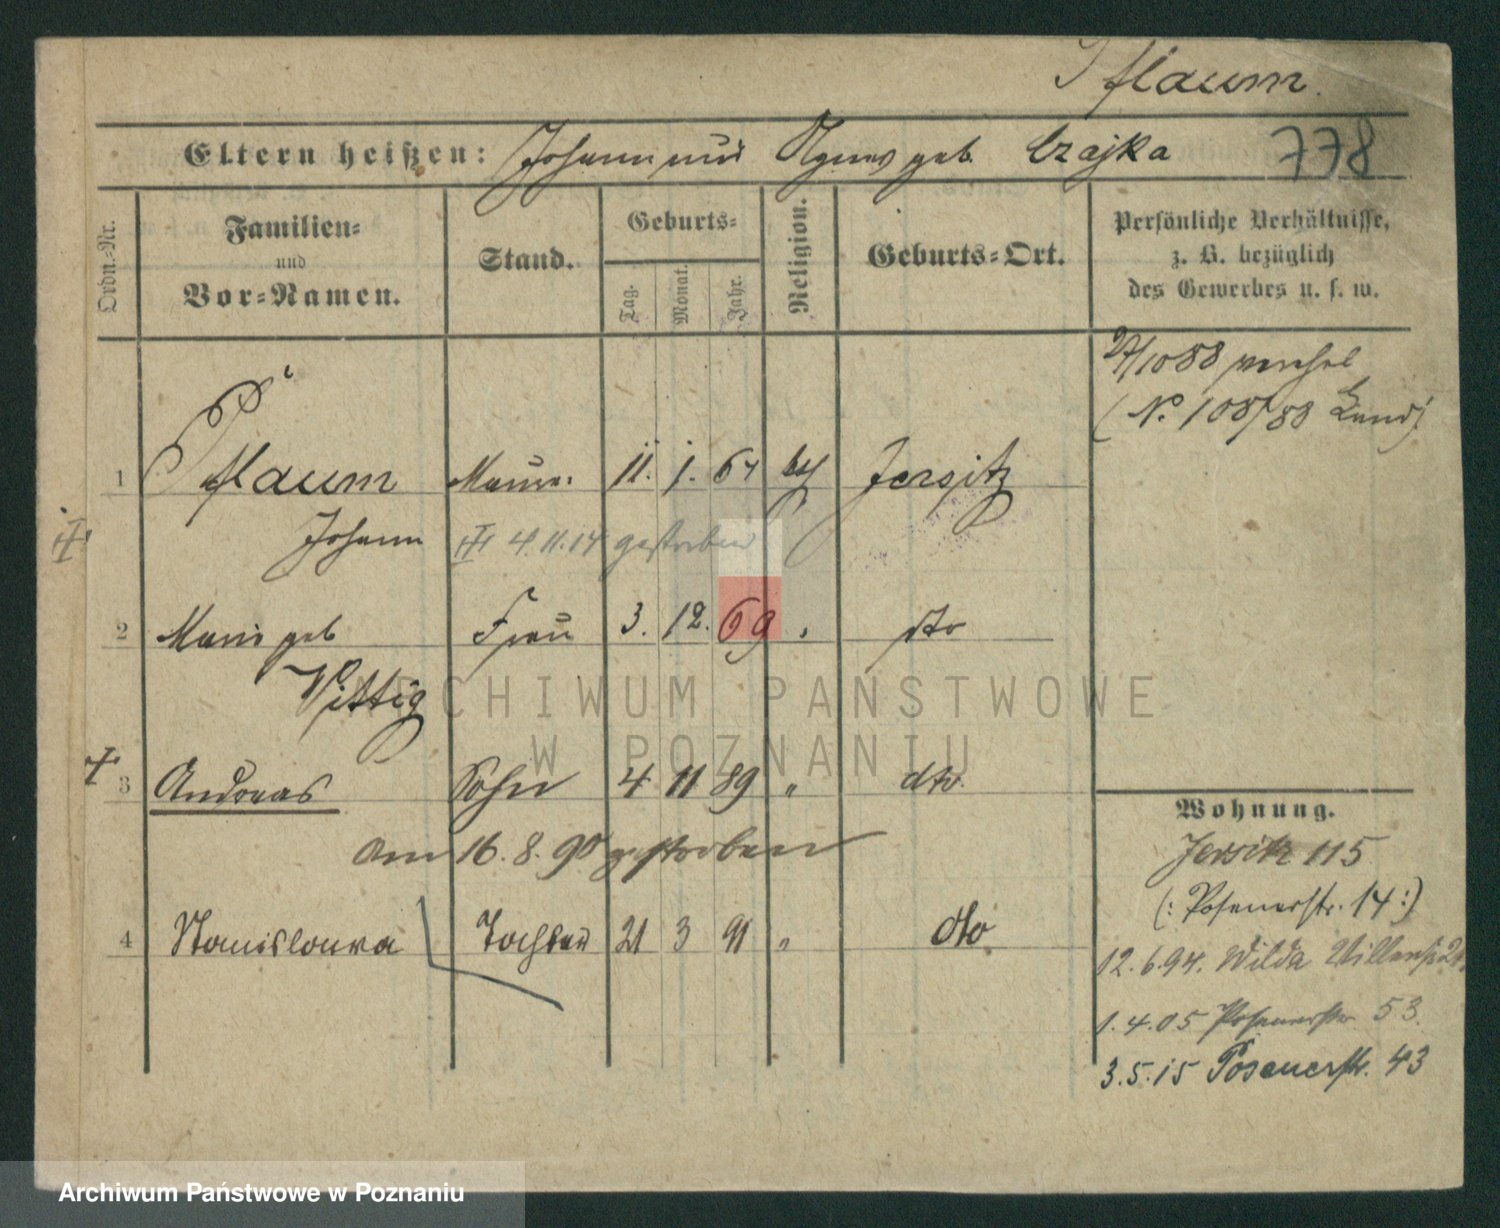 Pflaum.
Eltern heißen: Johann und Agnes geb. Czajka 778
Ordn.-Nr.
Familien-
und
Vor-Namen.
Stand.
Geburts-
Tag.
Monat.
Jahr.
Religion.
Geburts-Ort.
Persönliche Verhältnisse,
z. B. bezüglich
des Gewerbes u. s. w.
27/10 88
(N. 108/88
1 Pflaum Maur. 11. 1. 67 Jersitz
Johann 4.11.14 gestorben
2 Marie geb Frau 3. 12. 69 " dto
Wittig
3 Andreas Sohn 4 11 89 " dto.
am 16. 8. 90 gestorben
4 Stanislawa Tochter 21 3 91 " dto
Wohnung.
Jersitz 115
(: Posenerstr. 14 :)
12.6.94. Wilda
1.4.05 Posenerstr 53.
3.5.15 Posenerstr. 43
ARCHIWUM PAŃSTWOWE
W POZNANIU
Archiwum Państwowe w Poznaniu